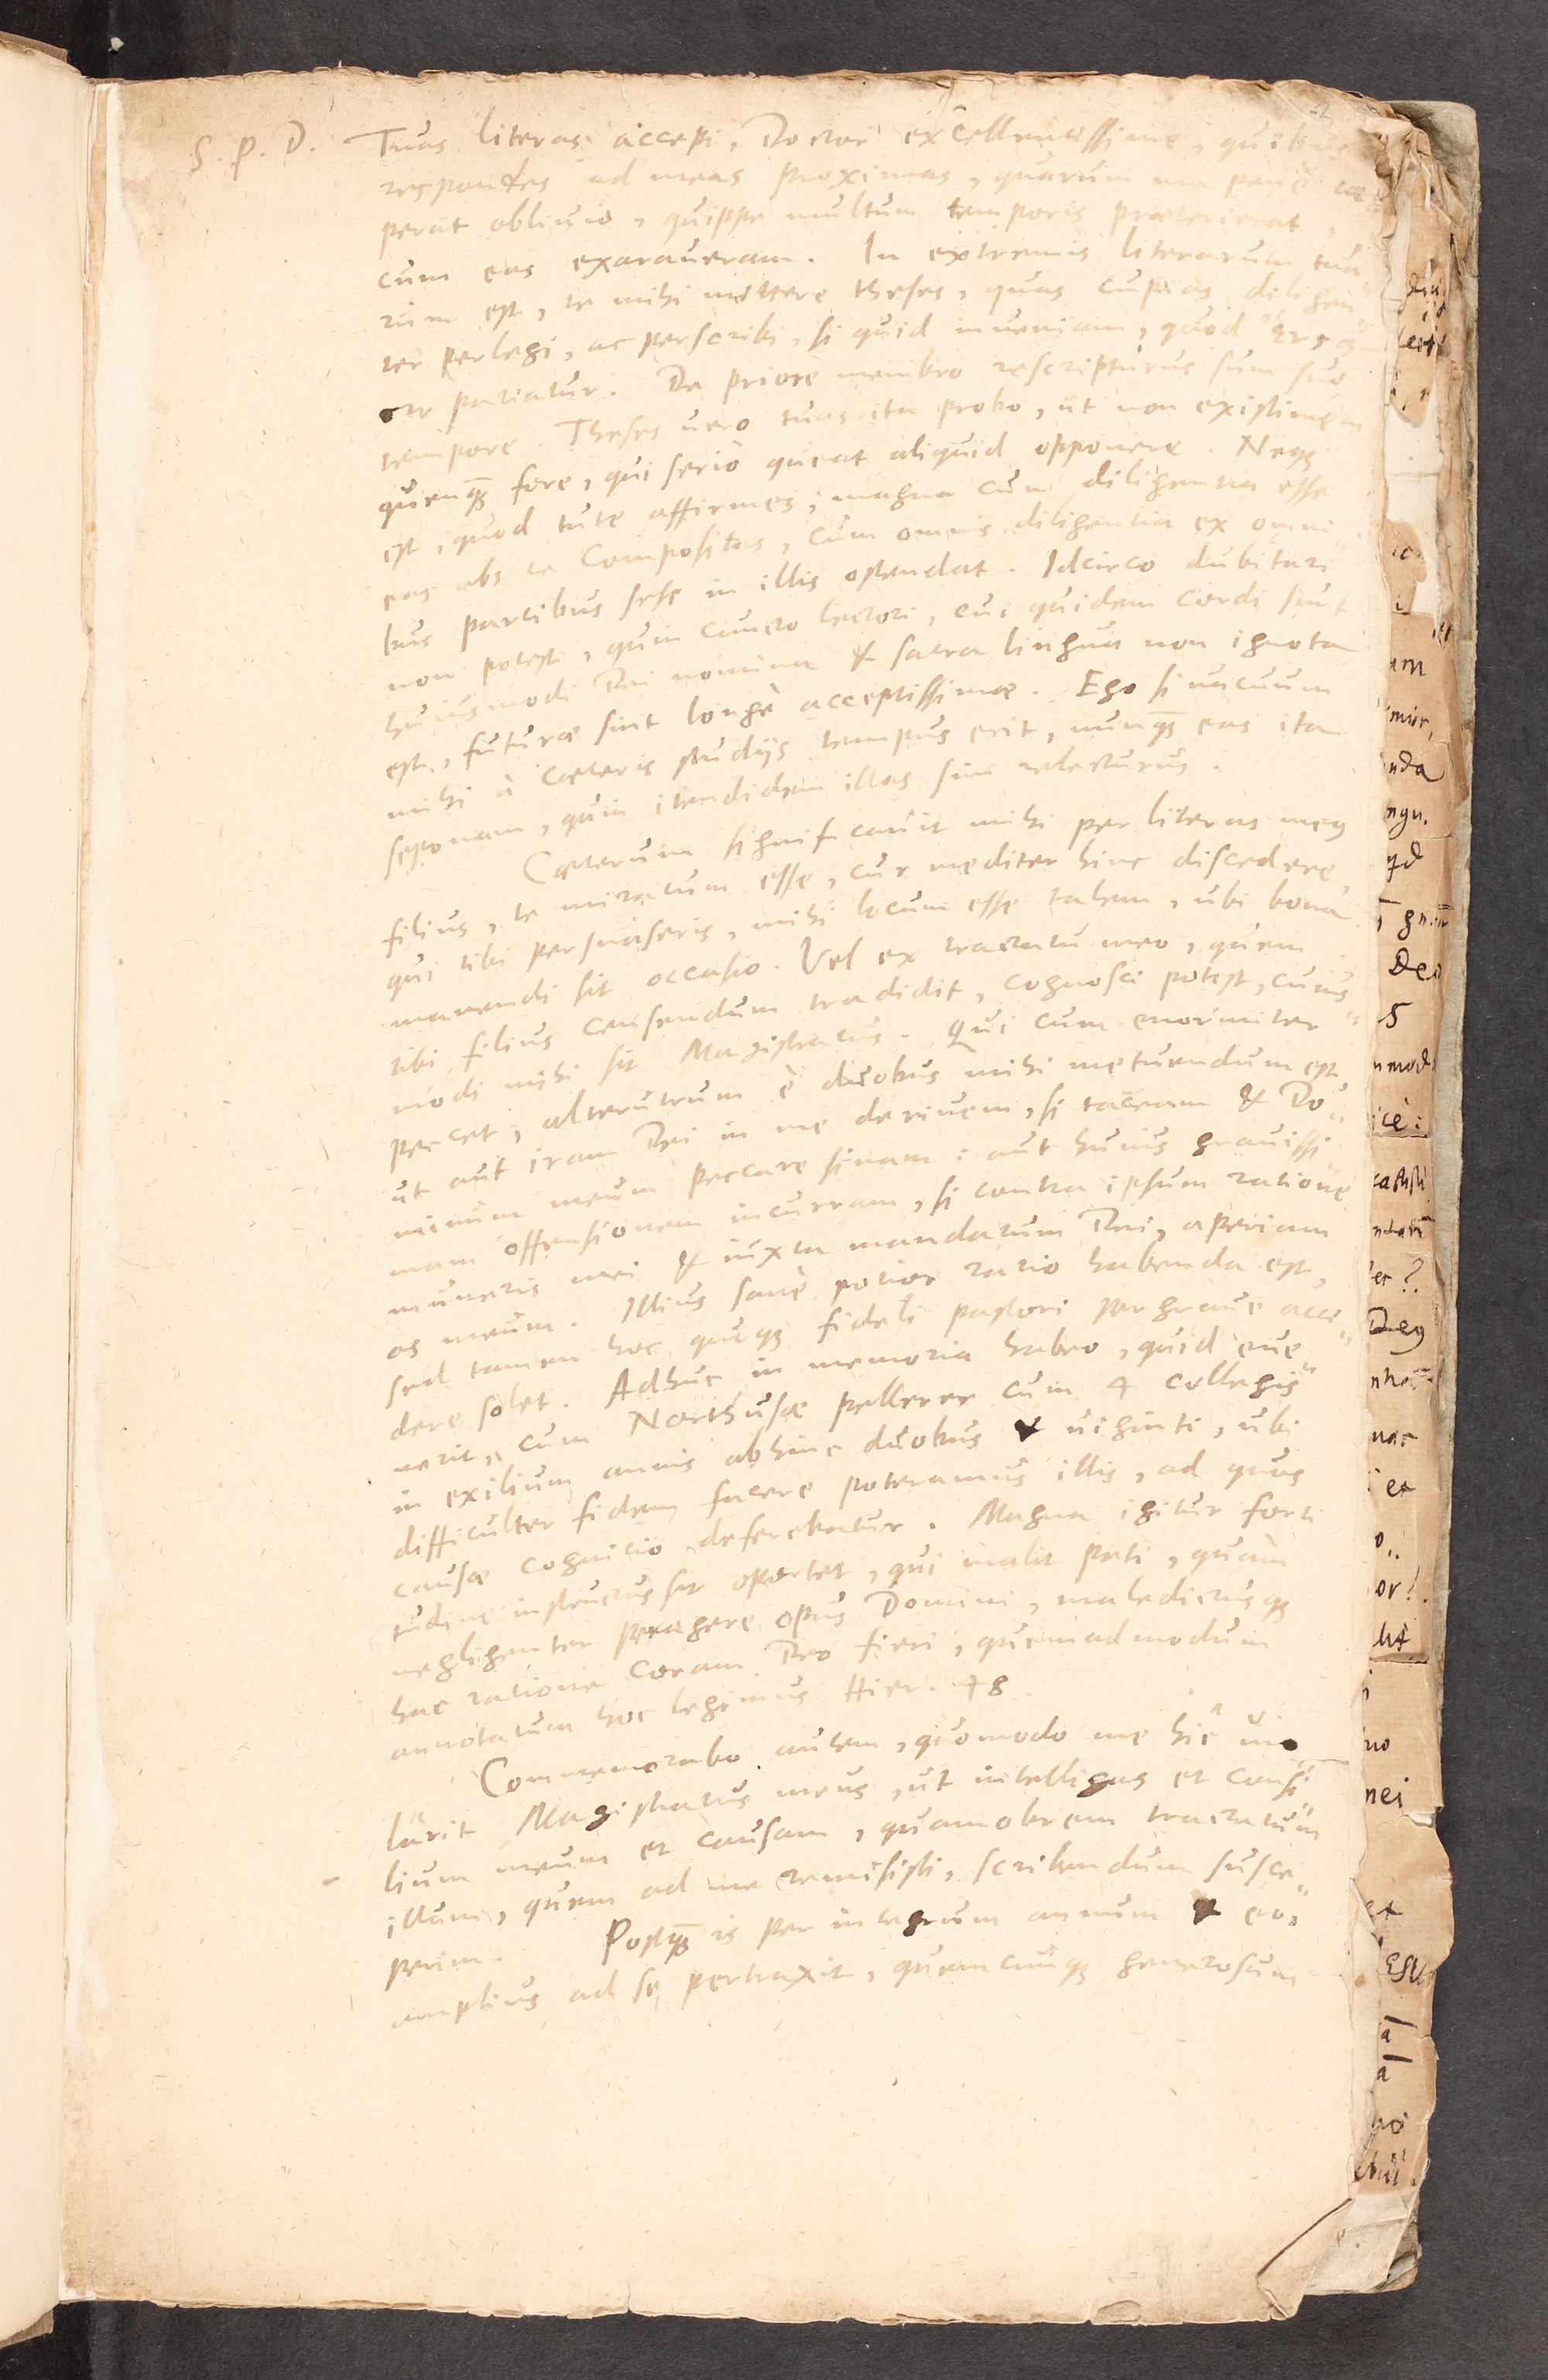 S. P. D. Tuas literas accepi, Doctor excellentissime, quibus
respondes ad meas proximas, quarum me penè cœ
perat obliuio, quippe multum temporis præterierat,
cum eas exaraueram. In extremis literarum tua„
rum est, te mihi mittere theses, quas cupias diligen„
ter perlegi, ac perscribi, si quid inveniam, quod
pariatur. De priore membro rescripturus sum suo
tempore. Theses uero tuas ita probo, ut non existimem
quenq̃ fore, qui serio queat aliquid opponere. Neq́
est, quod tute affirmes, magna cum diligentia esse
eas abs te compositas, cum omnis diligentia ex omni„
bus partibus sese in illis ostendat. Idcirco dubitari
non potest, quin cuncto lectori, cui quidem cordi sunt
huiusmodi Dei nomina & sacra lingua non ignota
est, futuræ sint longè acceptissimæ. Ego si uacuum
mihi à cæteris studijs tempus erit, nunq̃ eas ita
seponam, quin itendidem illas sim relecturus.
Cæterum significauit mihi per literas meus
filius, te miratum esse, cur mediter hinc discedere,
qui tibi persuaseris, mihi locum esse talem, ubi bona
manendi sit occasio. Vel ex tractatu meo, quem
tibi filius censendum tradidit, cognosci potest, cuius„
modi mihi sit Magistratus. Qui cum enormiter
peccet, alterutrum è duobus mihi metuendum est,
ut aut iram Dei in me derivem, si taceam & Do„
minum meum peccare sinam: aut huius grauissi
mam offensionem incurram, si contra ipsum ratione
muneris mei & iuxta mandatum Dei, aperiam
os meum. Illius sanè potior ratio habenda est,
sed tamen hoc quoq́ fideli pastori pergraue acci„
dere solet. Adhuc in memoria habeo, quid eue„
nerit, cum Northusæ pellerer cum 4 collegis
in exilium annis abhinc duobus & uiginti, ubi
difficulter fidem facere poteramus illis, ad quos
causæ cognitio deferebatur. Magna igitur forti
tudine instructus sit oportet, qui malit pati, quàm
negligenter peragere opus Domini, maledictusq́
hac ratione coram Deo fieri, quemadmodum
annotatum hoc legimus Hier. 48.
Commemorabo autem, quomodo me hîc uio
larit Magistratus meus, ut intelligas et consi„
lium meum et causam, quamobrem tractatum
illum, quem ad me remisisti, scribendum susce„
perim. Postq̃ is per integrum annum & eo
amplius ad se pertraxit, quemcunq́ generosum